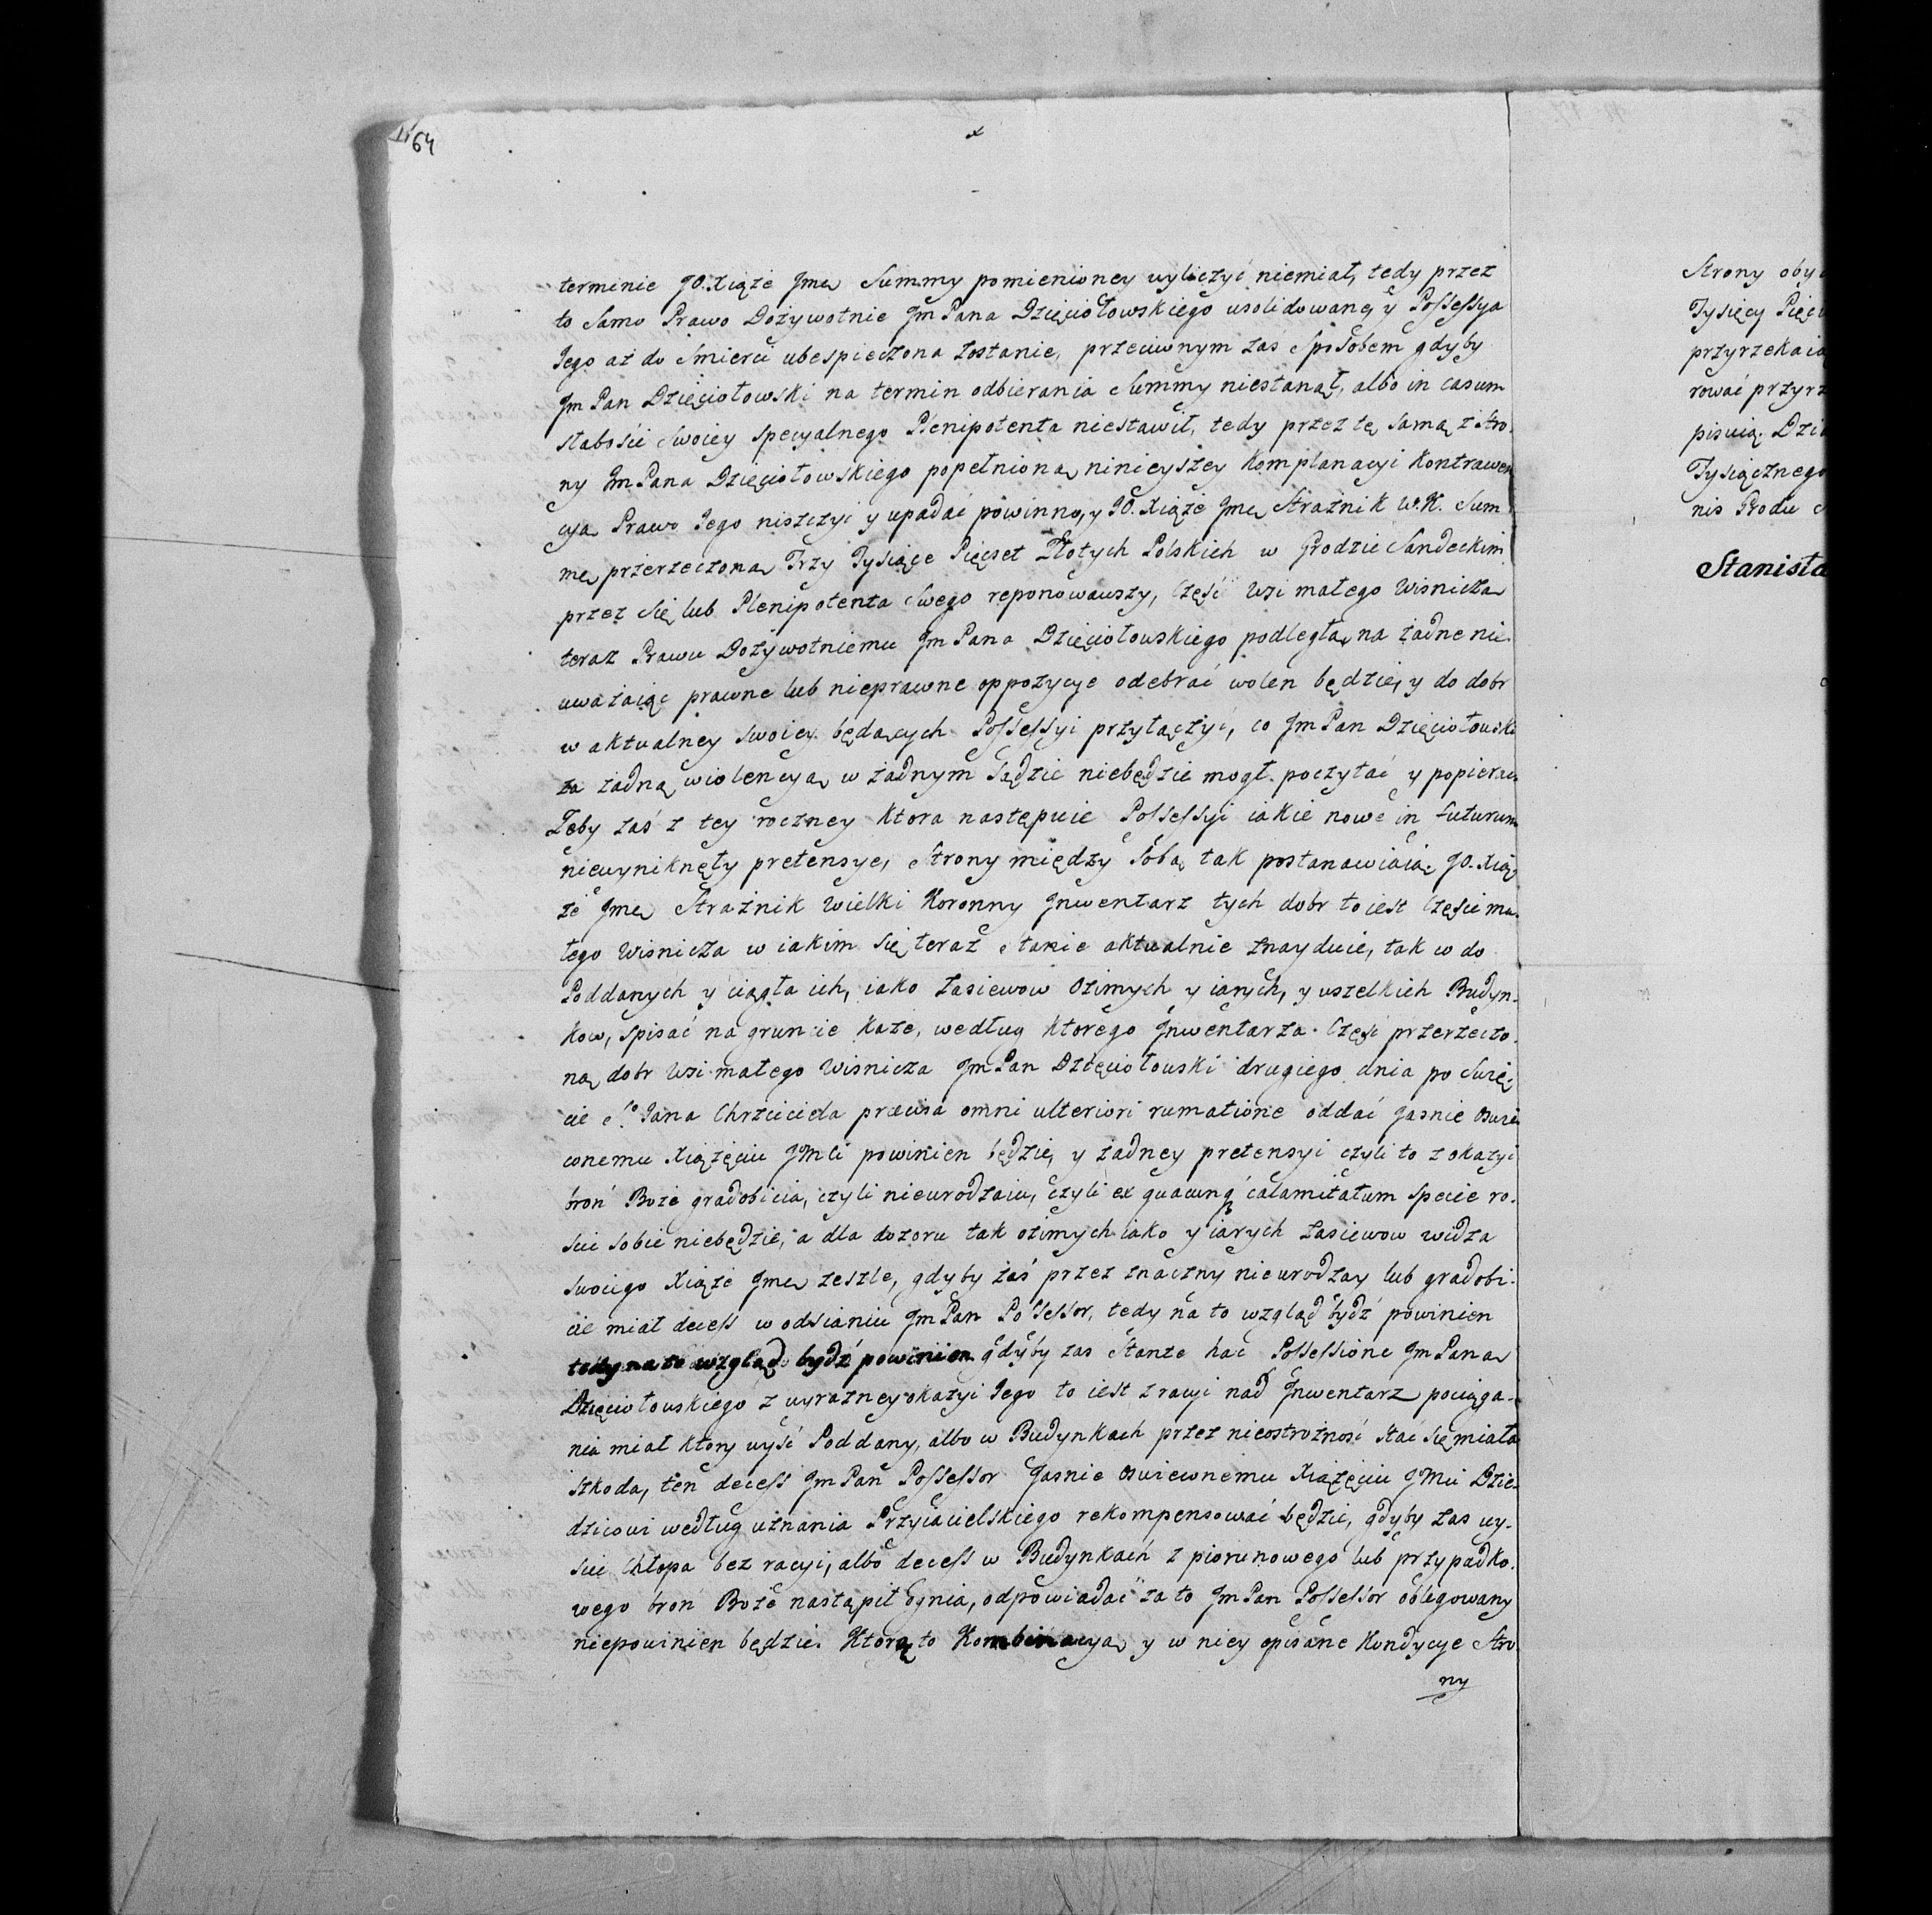 64
terminie JO. Xiąże Jmć Summy pomienioney wyliczyć niemiał, tedy przez
to Samo Prawo Dożywotnie Jm Pana Dzięciołowskiego usolidowane y Possessya
Jego aż do Smierci ubespieczona zostanie, przeciwnym zaś Sposobem gdyby
Jm Pan Dzięciołowski na termin odbierania Summy niestanął, albo in casum
słabości Swoiey specyalnego Plenipotenta niestawił, tedy przez tę samą z Stro-
ny Jm Pana Dzięciołowskiego popełnioną ninieyszey Komplanacyi Kontrawen
cyą Prawo Jego niszczyć y upadać powinno, y JO. Xiąże Jmć Strażnik W. K. Sum
mę przerzeczoną Trzy Tysiące Pięcset Złotych Polskich w Grodzie Sandeckim
przez Się lub Plenipotenta Swego reponowawszy, Część Wsi małego Wisnicza
teraz Prawu Dożywotniemu Jm Pana Dzięciołowskiego podległą na żadne nie-
uważaiąc prawne lub nieprawne oppozycye odebrać wolen będzie, y do dobr
w aktualney swoiey będących Possessyi przyłączyć, co Jm Pan Dzięciołowski
za żadną wiolencyą w żadnym Sądzie niebędzie mogł poczytać y popierać
Żeby zaś z tey roczney ktora następuie Possessyi iakie nowe in futurum
niewyniknęły pretensye, Strony między Sobą tak postanawiaią. JO. Xią-
że Jmć Strażnik Wielki Koronny Jnwentarz tych dobr to iest Części ma-
łego Wisnicza w iakim się teraz stanie aktualnie znayduie, tak w do
Poddanych y ciągła ich, iako zasiewow ozimych y iarych, y wszelkich Budyn-
kow, spisać na gruncie każe, według ktorego Jnwentarza Część przerzeczo-
ną dobr Wsi małego Wisnicza Jm Pan Dzięciołowski drugiego dnia po Swię-
cie S.º Jana Chrzciciela præcisa omni ulteriori rumatione oddać Jasnie Oswie
conemu Xiążęciu JMci powinien będzie, y żadney pretensyi czyli to z okazyi
broń Boże gradobicia, czyli nieurodzaiu, czyli ex quacunq calamitatum specie ro-
ścić sobie niebędzie, a dla dozoru tak ozimych iako y iarych zasiewow widza
swoiego Xiąże Jmć zeszle, gdyby zaś przez znaczny nieurodzay lub gradobi-
cie miał decess w odsianiu Jm Pan Possessor, tedy na to wzgląd bydź powinien
tedy na to wzgląd bydź powinien gdyby zas Stante hac Possessione Jm Pana
Dzięciołowskiego z wyrazney okazyi Jego to iest z racyi nad Jnwentarz pociąga-
nia miał ktory wyść Poddany, albo w Budynkach przez nieostrożność stać się miała
szkoda, ten decess Jm Pan Possessor Jasnie Oswieconemu Xiążęciu JMci Dzie-
dzicowi według uznania Przyiacielskiego rekompensować będzie, gdyby zas wy-
ście Chłopa bez racyi, albo decess w Budynkach z piorunowego lub przypadko-
wego broń Boże nastąpił Ognia, odpowiadać za to Jm Pan Possessor oblegowany
niepowinien będzie. Którą to Kombinacyą y w niey opisane Kondycye Stro
ny
Strony oby
Tysięcy Pięć
przyrzekaią
rować przyrz
Tysiącznego
Stanisła